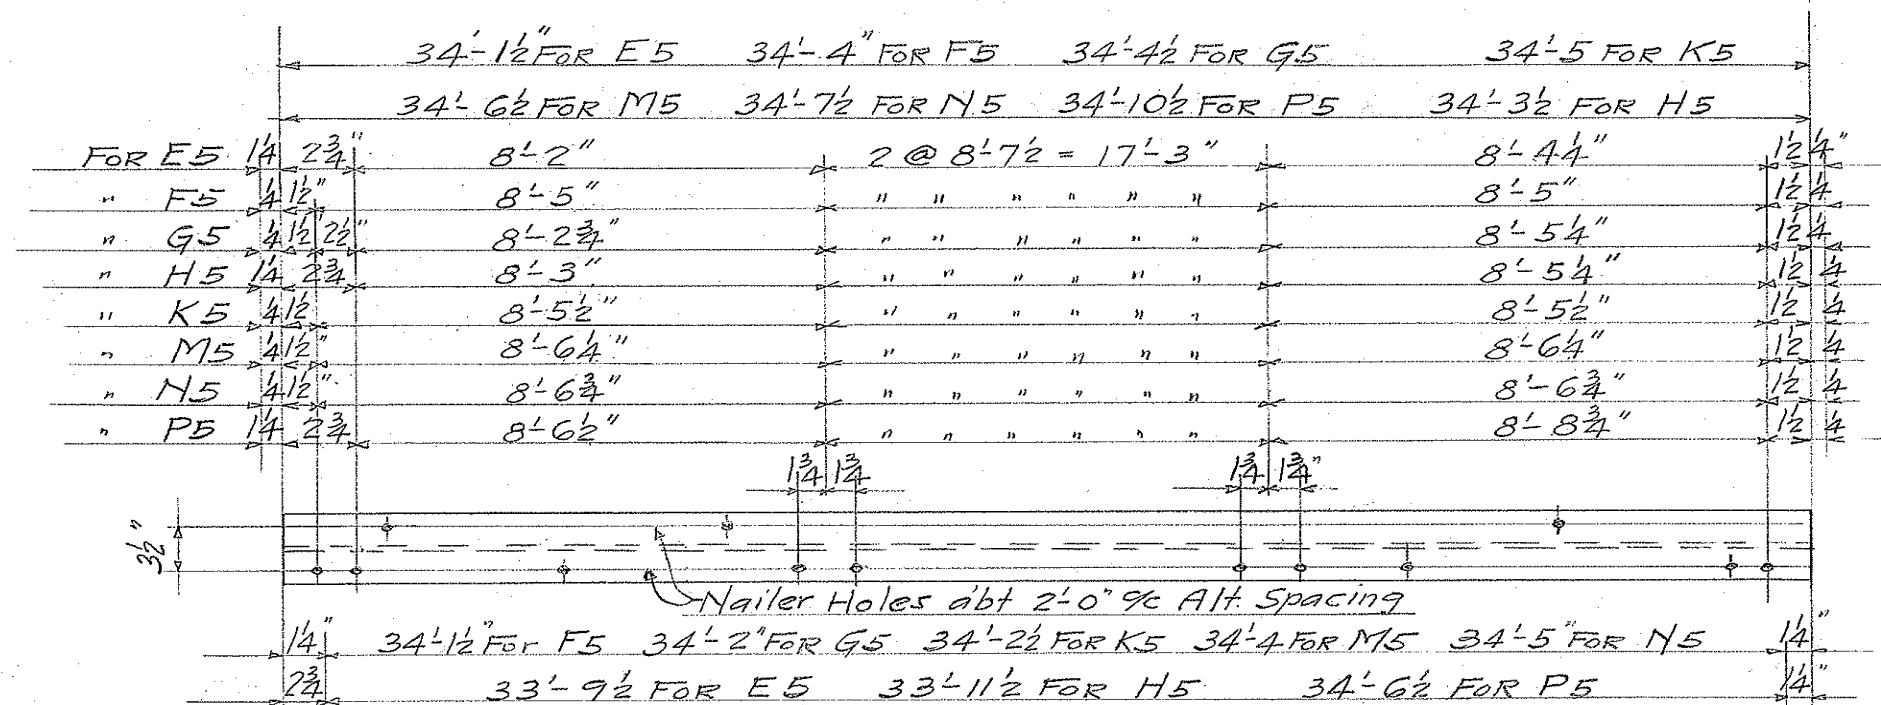 34'-1½" FOR E5 34'-4" FOR F5 34'-4½ FOR G5 34'-5 FOR K5
34'-6½ FOR M5 34'-7½ FOR N5 34'-10½ FOR P5 34'-3½ FOR H5
FOR E5 1¼ 2¾" 8'-2" 2 @ 8'-7½ = 17'-3" 8'-4¼" 1½ ¼"
" F5 ¼ 1½" 8'-5" " " " " " " 8'-5" 1½ ¼
" G5 ¼ 1½ 2½" 8'-2¾" " " " " " " 8'-5¼" 1½ ¼
" H5 1¼ 2¾ 8'-3" " " " " " " 8'-5¼" 1½ ¼
" K5 ¼ 1½ 8'-5½" " " " " " " 8'-5½" 1½ ¼
" M5 ¼ 1½" 8'-6¼" " " " " " " 8'-6¼" 1½ ¼
" N5 ¼ 1½" 8'-6¾" " " " " " " 8'-6¾" 1½ ¼
" P5 1¼ 2¾ 8'-6½" " " " " " " 8'-8¾" 1½ ¼
1¾ 1¾ 1¾ 1¾"
3½"
Nailer Holes abt 2'-0" c/c Alt. Spacing
1¼" 34'-1½" For F5 34'-2" FOR G5 34'-2½ FOR K5 34'-4 FOR M5 34'-5" FOR N5 1¼"
2¾ 33'-9½ FOR E5 33'-11½ FOR H5 34'-6½ FOR P5 1¼"